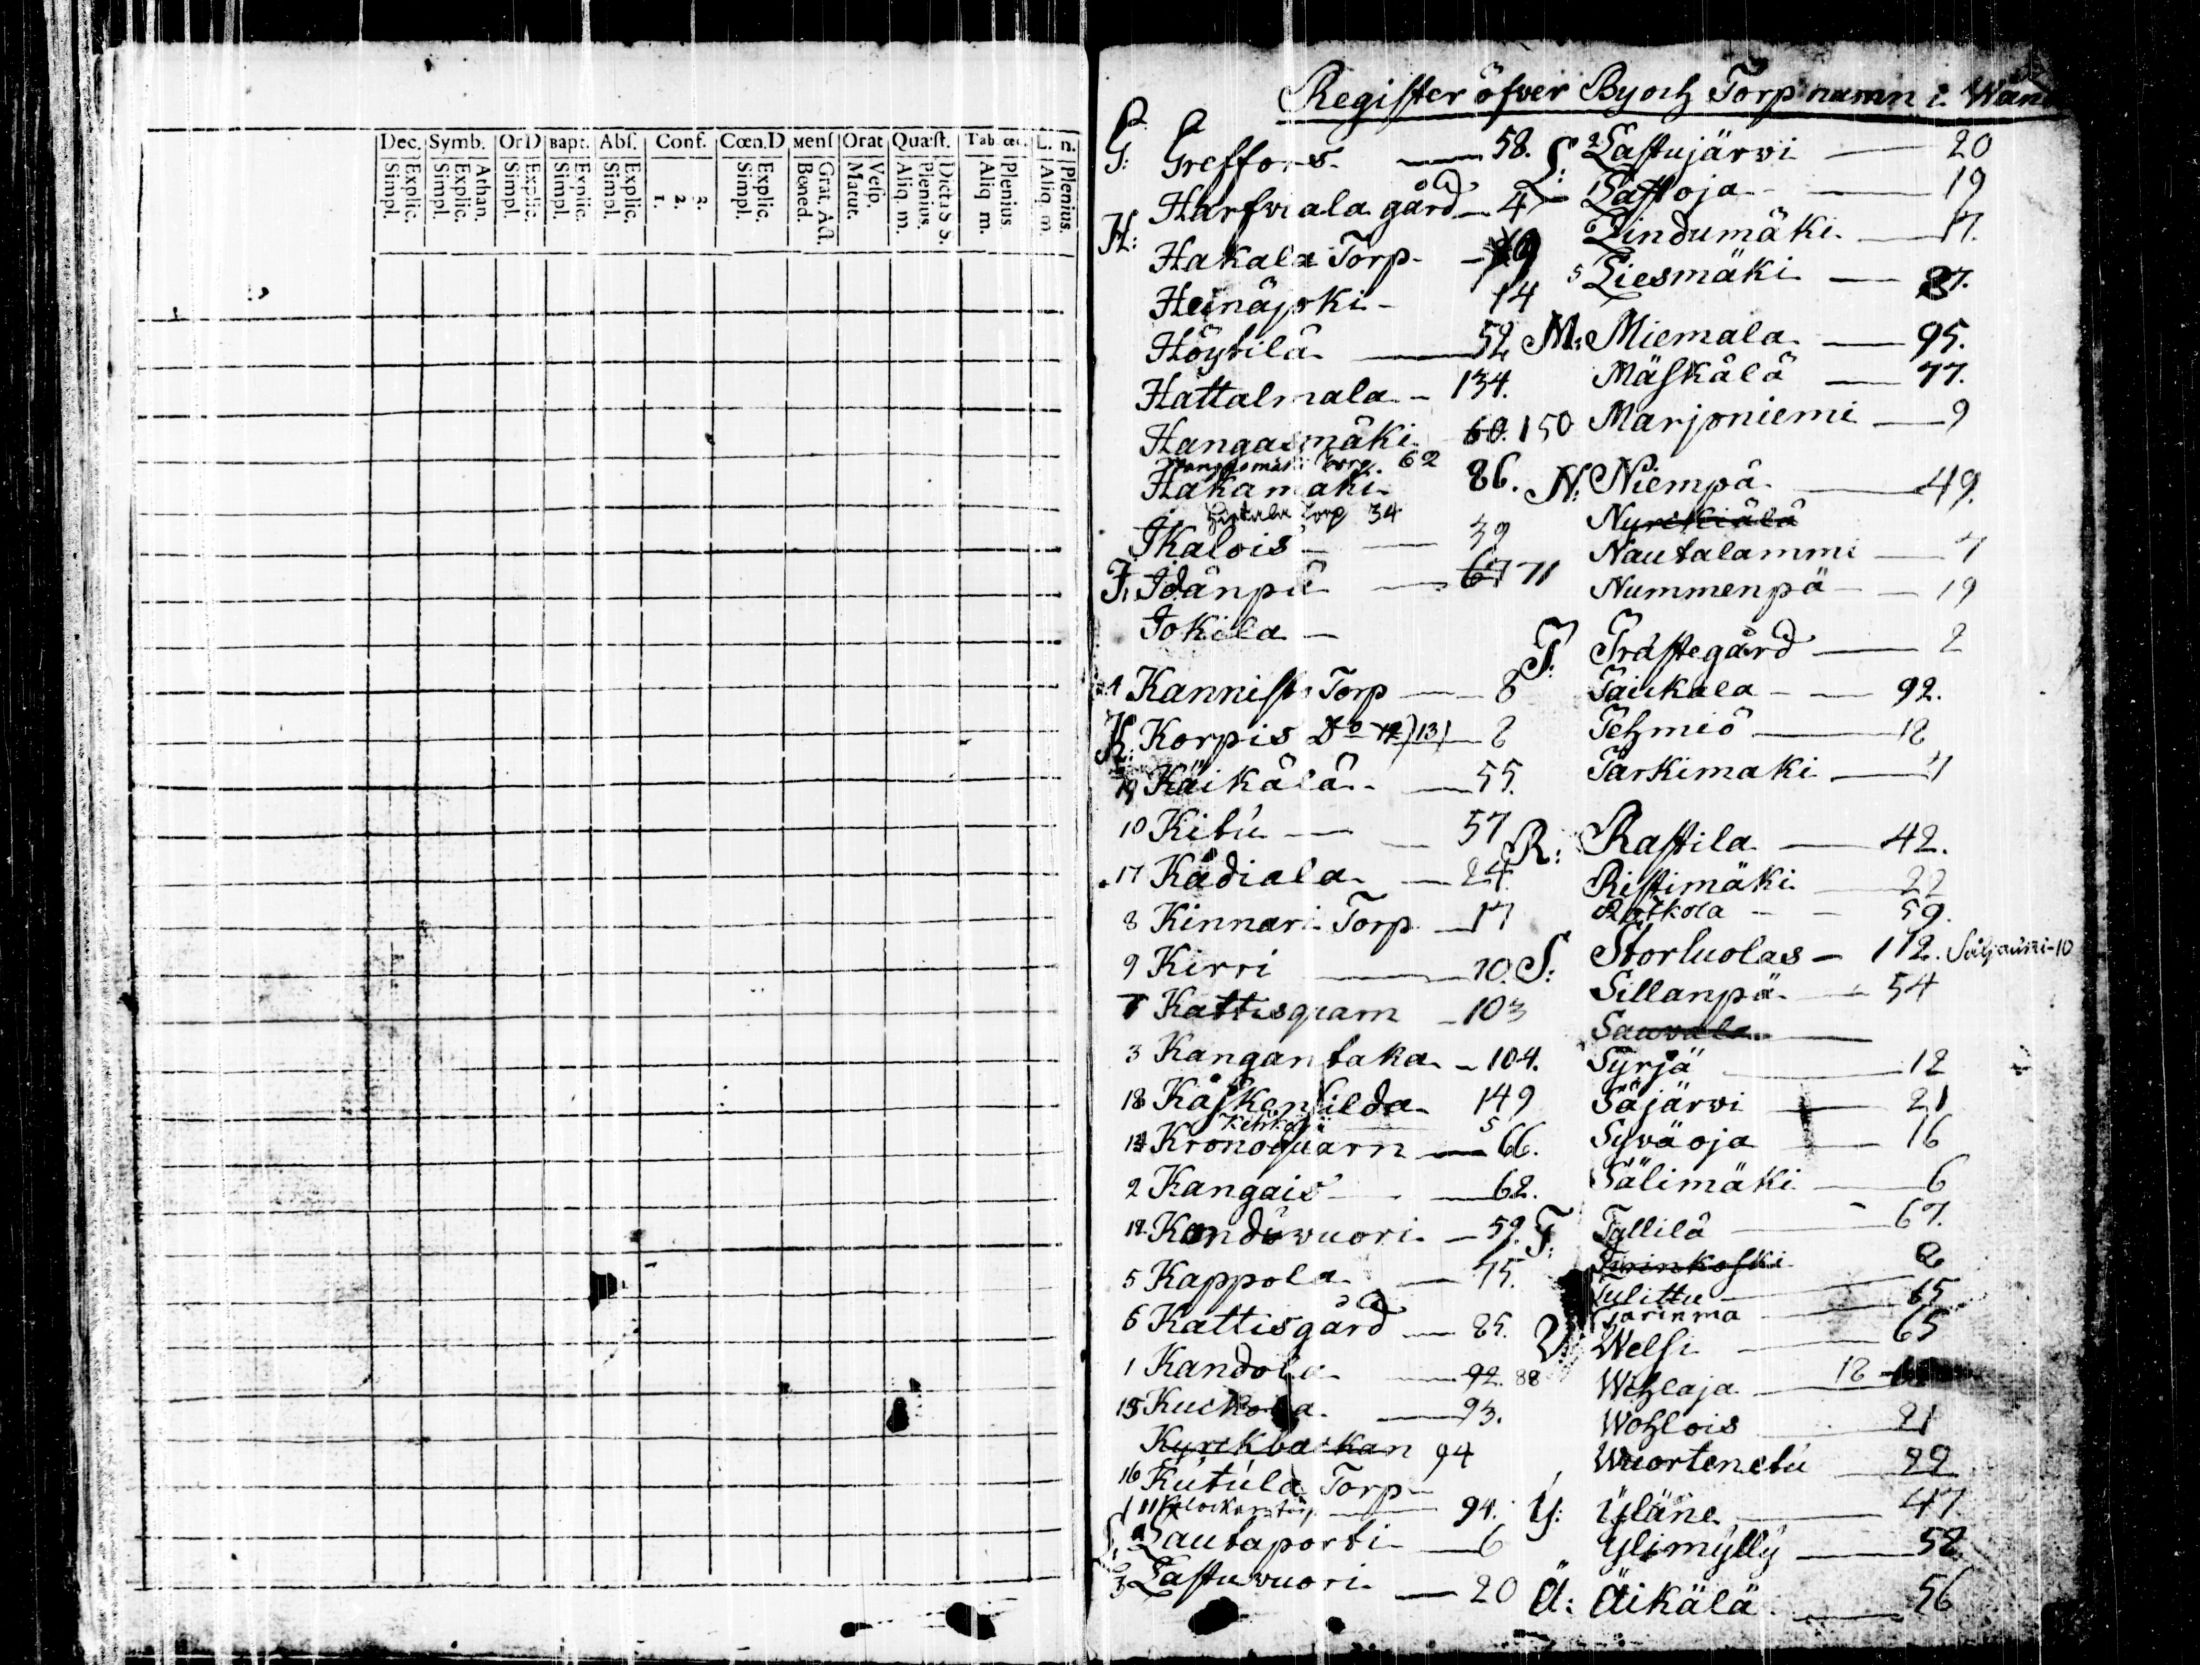 Dec. Symb. Or D Bapt. Abſ. Conf. Cœn.D Menſ Orat Quæſt. Tab. œc. L. n.
Explic. Simpl. Athan. Explic. Simpl. Explic. Simpl. Explic. Simpl. Explic. Simpl. 3. 2. 1. Explic. Simpl. Grat. Act. Bened. Veſp. Matut. Dicta S S. Plenius. Aliq. m. Plenius. Aliq m. Plenius. Aliq. m.
Regiſter öfver By och Torp namn i Wån
G: Greffors 58.
Harfwiala gård 4
H: Hakala Torp
Heinäjoki 14
Höytilä 52
Hattalmala 134.
Hangasmäki 60. 150
Hangasmäki Torp. 62
Hakamäki 86.
Hietala Torp 34
Ikalois 39
I: Idänpä 67 71
Jokila
4 Kannisto Torp 8
K: Korpis Do 12) 13) 8
19 Käikälä 55.
10 Kitu 57
17 Kådiala 24.
8 Kinnari Torp 17
9 Kirri 10.
7 Kattisquarn 103
3 Kangantaka 104.
18 Kåſkensilda 149
14 Kronoquarn 66.
2 Kangais 62.
12 Konduwuori 59.
5 Kappola 75.
6 Kattisgård 85.
1 Kandola 92. 88
15 Kuckola 93.
Kyrckbackan 94
16 Kutula Torp
11 Klockaretorp 94.
L: Lautaporti 6
3 Laſtuwuori 20
L: 2 Laſtujärwi 20
1 Laſtoja 19
6 Lindumäki 17.
5 Liesmäki 87.
M: Miemala 95.
Mäſkälä 77.
Marjoniemi 9
N: Niempä 49.
Nyrckiälä
Nautalammi 7
Nummenpä 19
P: Präſtegård 2
Paickala 92.
Pehmiö 18
Parkimaki 7
R: Raſtila 42.
Riſtimäki 22
Rötkola 59.
S: Storluolas 112. Siljauni 10
Sillanpä 54
Sauvala
Syrjä 12
Säjärwi 21
Sywäoja 16
Sälimäki 6
T: Tyllilä 67.
Turinkoſki 2
Tulittu 65
Tjärinma
V: Welſi 65
Wihlaja 18
Wohlois 21
Wuortenetu 22
Y: Yläne 47
Ylimylly 58
Ä: Äikälä 56